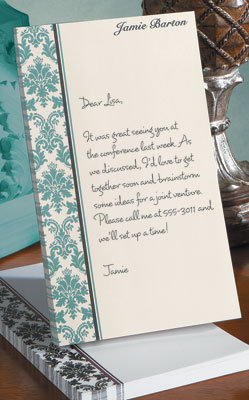 Jamie Barton
Dear Lisa,
It was great seeing you at
the conference last week. As
we discussed, I'd love to get
together soon and brainstorm
some ideas for a joint venture.
Please call me at 555-3011 and
we'll set up a time!
Jamie